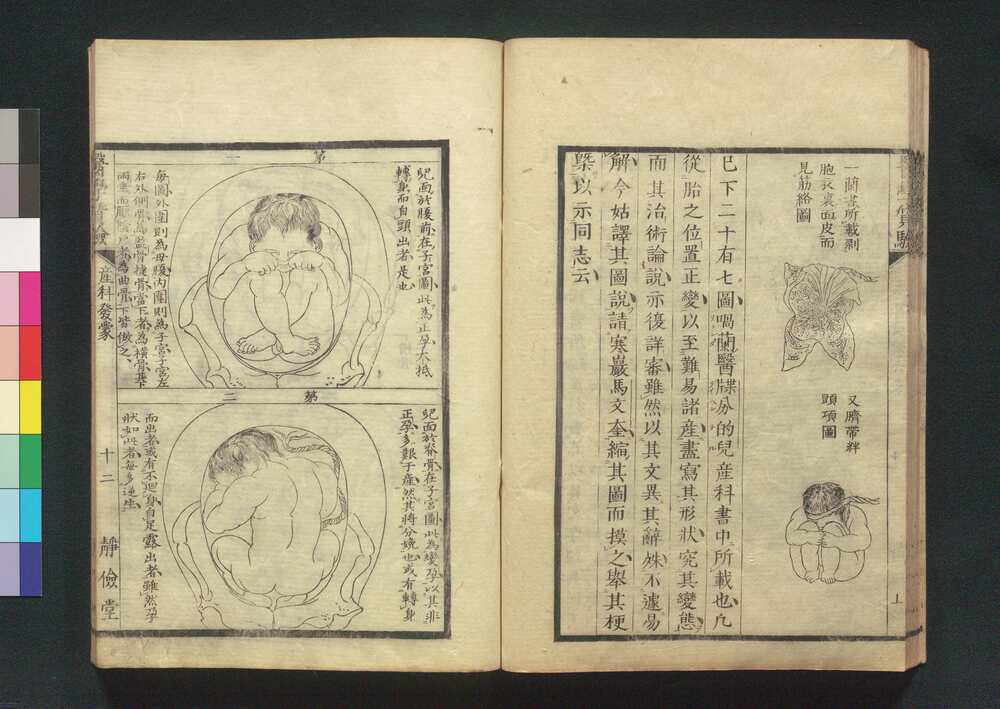 一蘭書所載剝
胞衣裏面皮而
見筋絡圖
又臍帶絆
頸項圖
已下二十有七圖喎蘭醫牒汾的兒產科書中所載也凡
從胎之位置正變以至難易諸產盡寫其形狀究其變態
而其治術論說亦復詳審雖然以其文異其辭殊不遽易
解今姑譯其圖說請寒巖馬文奎縮其圖而摸之舉其梗
槩以示同志云
第一
兒面於腹前在子宮圖此為正孕大抵
轉身而自頭出者是也
每圖外圍則為母腹內圍則為子宮子宮左
右外側骨為監骨捷骨當下者為橫骨其下
為曲骨下皆倣之
第二
兒面於脊骨在子宮圖此為變孕以其非
正孕多艱于產然其將分娩也或有轉身
而出者或有不迴身自足露出者雖然孕
狀如此者每多逆生
產科發蒙
十二
靜儉堂